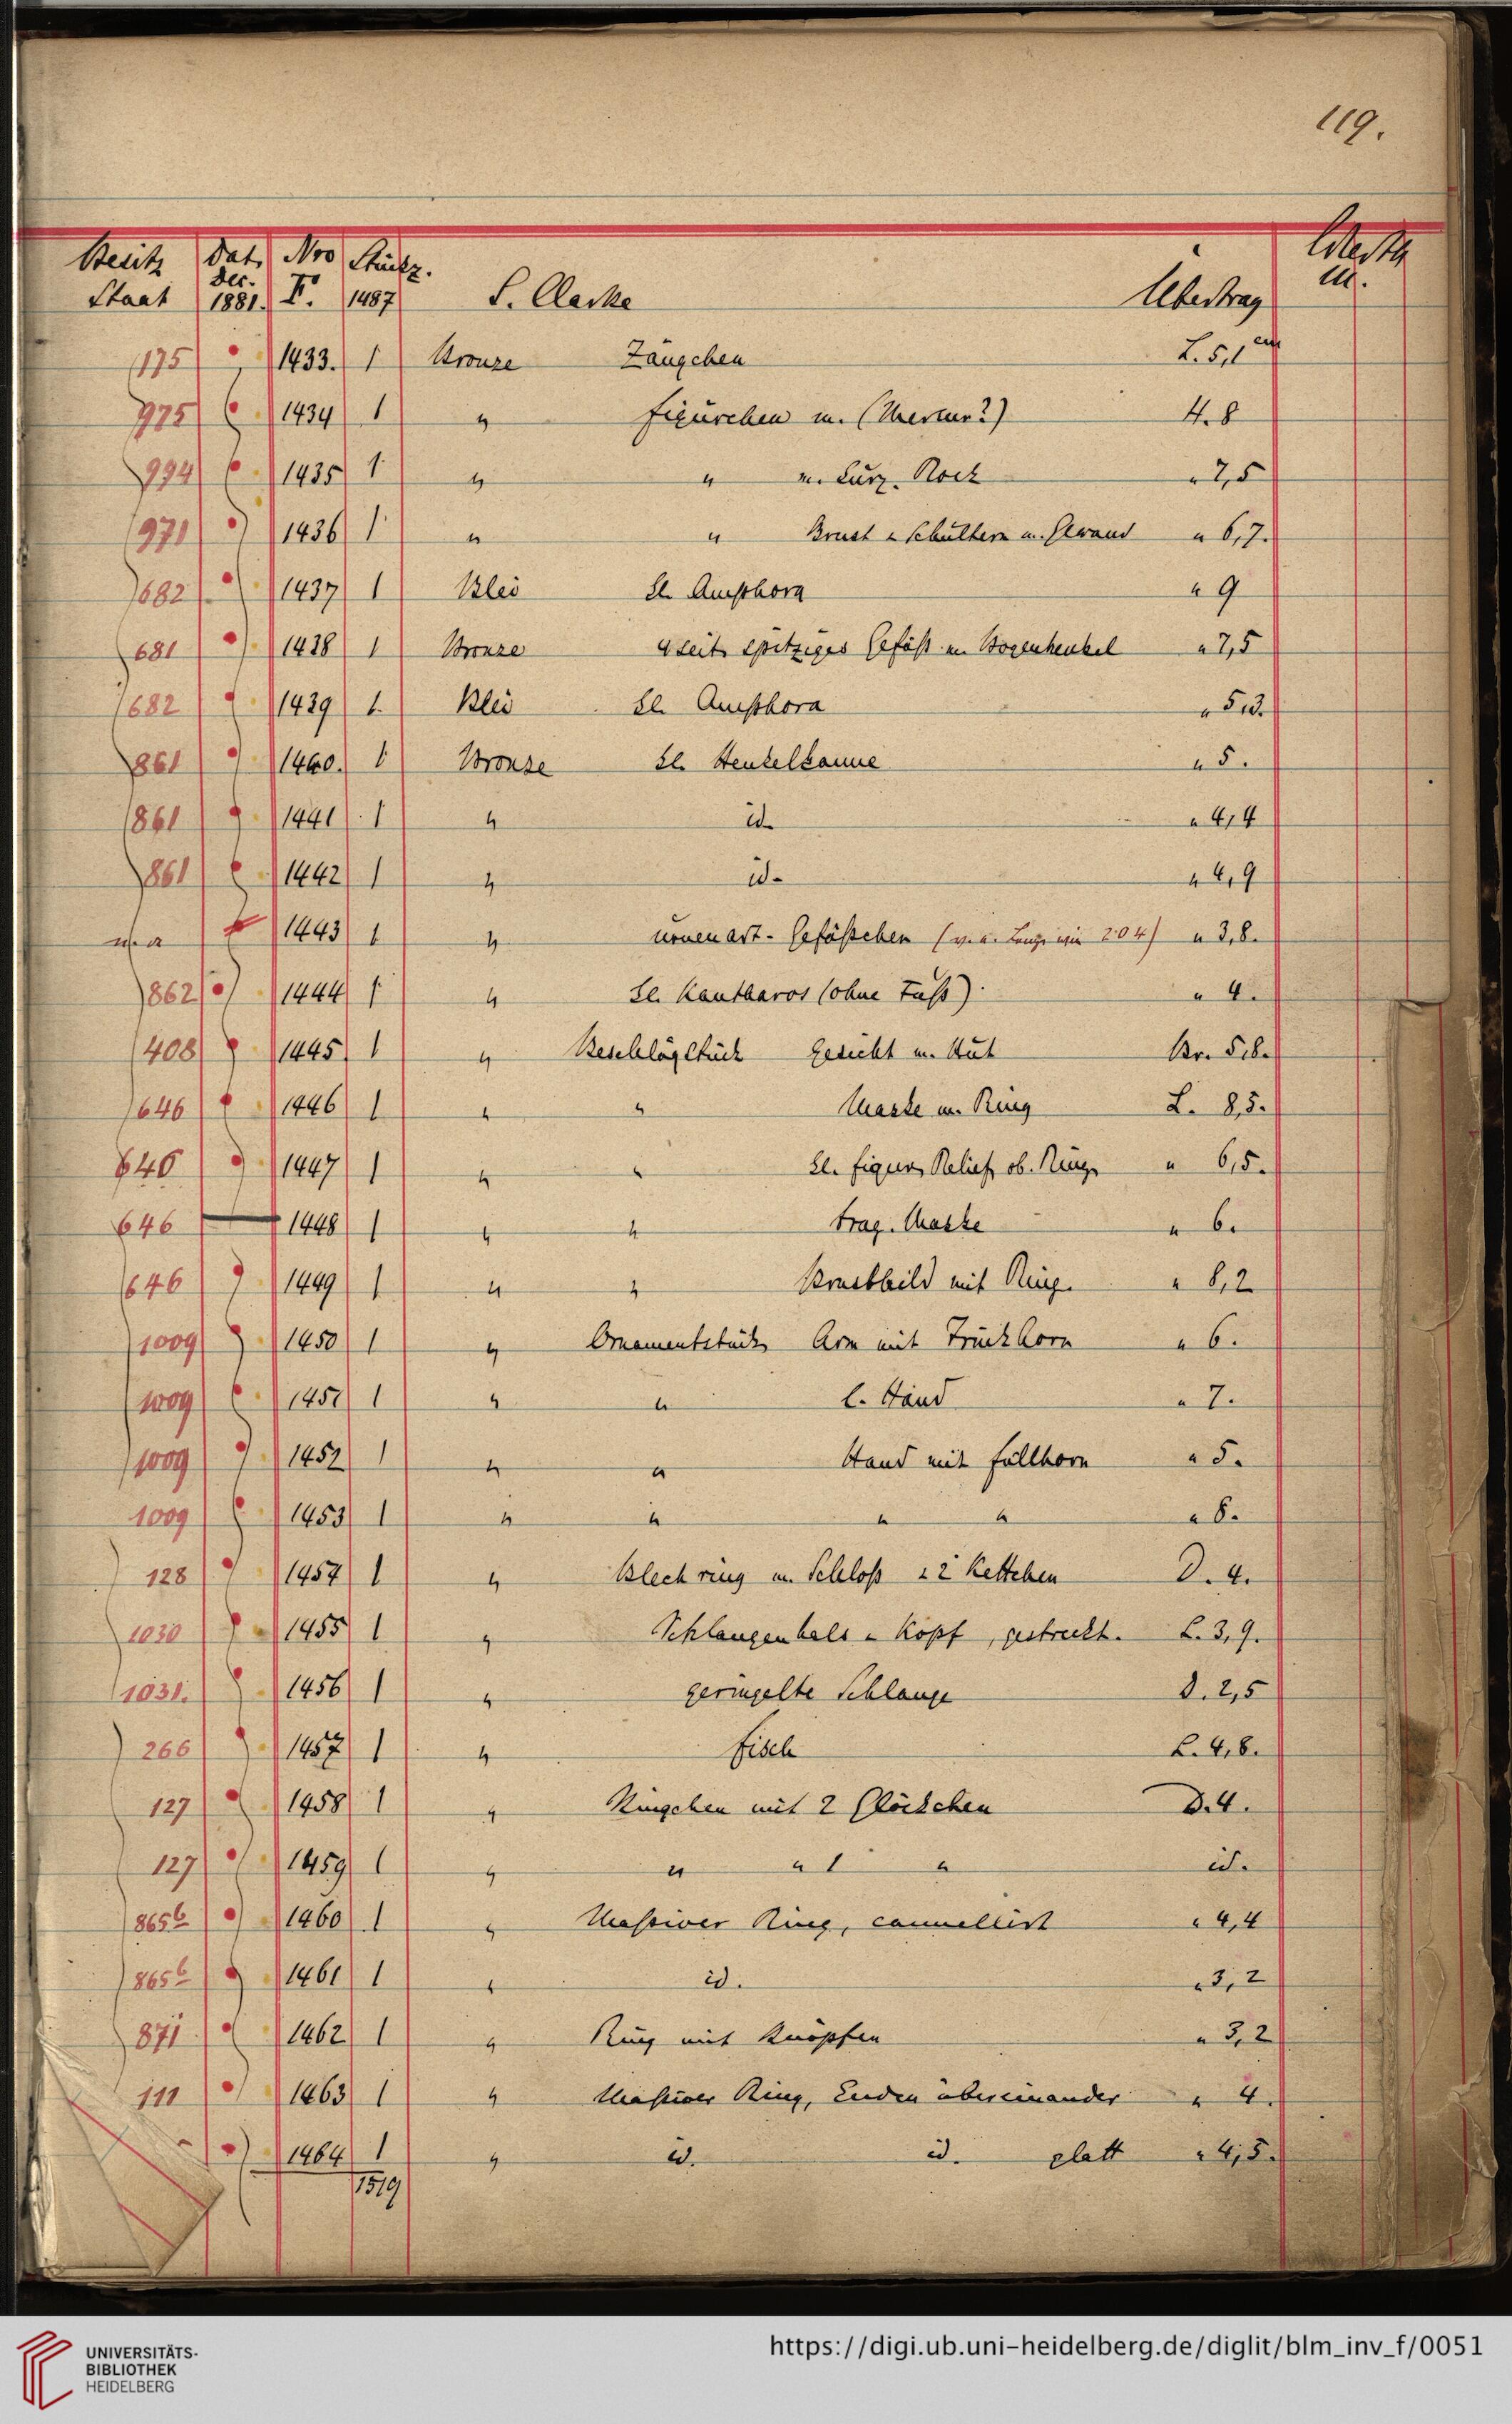 119.
Besitz Dat. Nro Stückz. Werth
Staat Dec. 1881. F. 1487 S. Clarke Übertrag M.
175 1433. 1 Bronze Zängchen L. 5,1 cm
975 1434 1 " Figürchen m. (Merkur?) H. 8
994 1435 1 " " m. kurz. Rock " 7,5
971 1436 1 " " Brust u Schultern m. Gewand " 6,7.
682 1437 1 Blei kl. Amphora " 9
681 1438 1 Bronze 4seit. spitziges Gefäß m. Bogenhenkel " 7,5
682 1439 1. Blei kl. Amphora " 5,3.
861 1440. 1 Bronze kl. Henkelkanne " 5.
861 1441 1 " id. " 4,4
861 1442 1 " id. " 4,9
m. a 1443 1 " urnenart. Gefäßchen 204) " 3,8.
862 1444 1 " kl. Kantharos (ohne Fuß). " 4.
408 1445 1 " Beschlägstück Gesicht m. Hut Br. 5,8.
646 1446 1 " " Maske m. Ring L. 8,5.
646 1447 1 " " kl. figur. Relief ob. Ring " 6,5.
646 1448 1 " " trag. Maske " 6.
646 1449 1 " " Brustbild mit Ring. " 8,2
1009 1450 1 " Ornamentstück Arm mit Trinkhorn " 6.
1009 1451 1 " " l. Hand " 7.
1009 1452 1 " " Hand mit Füllhorn " 5.
1009 1453 1 " " " " " 8.
128 1454 1 " Blechring m. Schloß u 2 Kettchen D. 4.
1030 1455 1 " Schlangenhals u Kopf, gestreckt. L. 3,9.
1031. 1456 1 " geringelte Schlange D. 2,5
266 1457 1 " Fisch L. 4,8.
127 1458 1 " Ringchen mit 2 Glöckchen D. 4.
127 1459 1 " " " 1 " id.
865b 1460 1 " Massiver Ring, cannellirt " 4,4
865b 1461 1 " id. " 3,2
871 1462 1 " Ring mit Knöpfen " 3,2
111 1463 1 " Massiver Ring, Enden übereinander " 4.
1464 1 " id. id. glatt " 4,5.
1519
UNIVERSITÄTS-
BIBLIOTHEK
HEIDELBERG
https://digi.ub.uni-heidelberg.de/diglit/blm_inv_f/0051